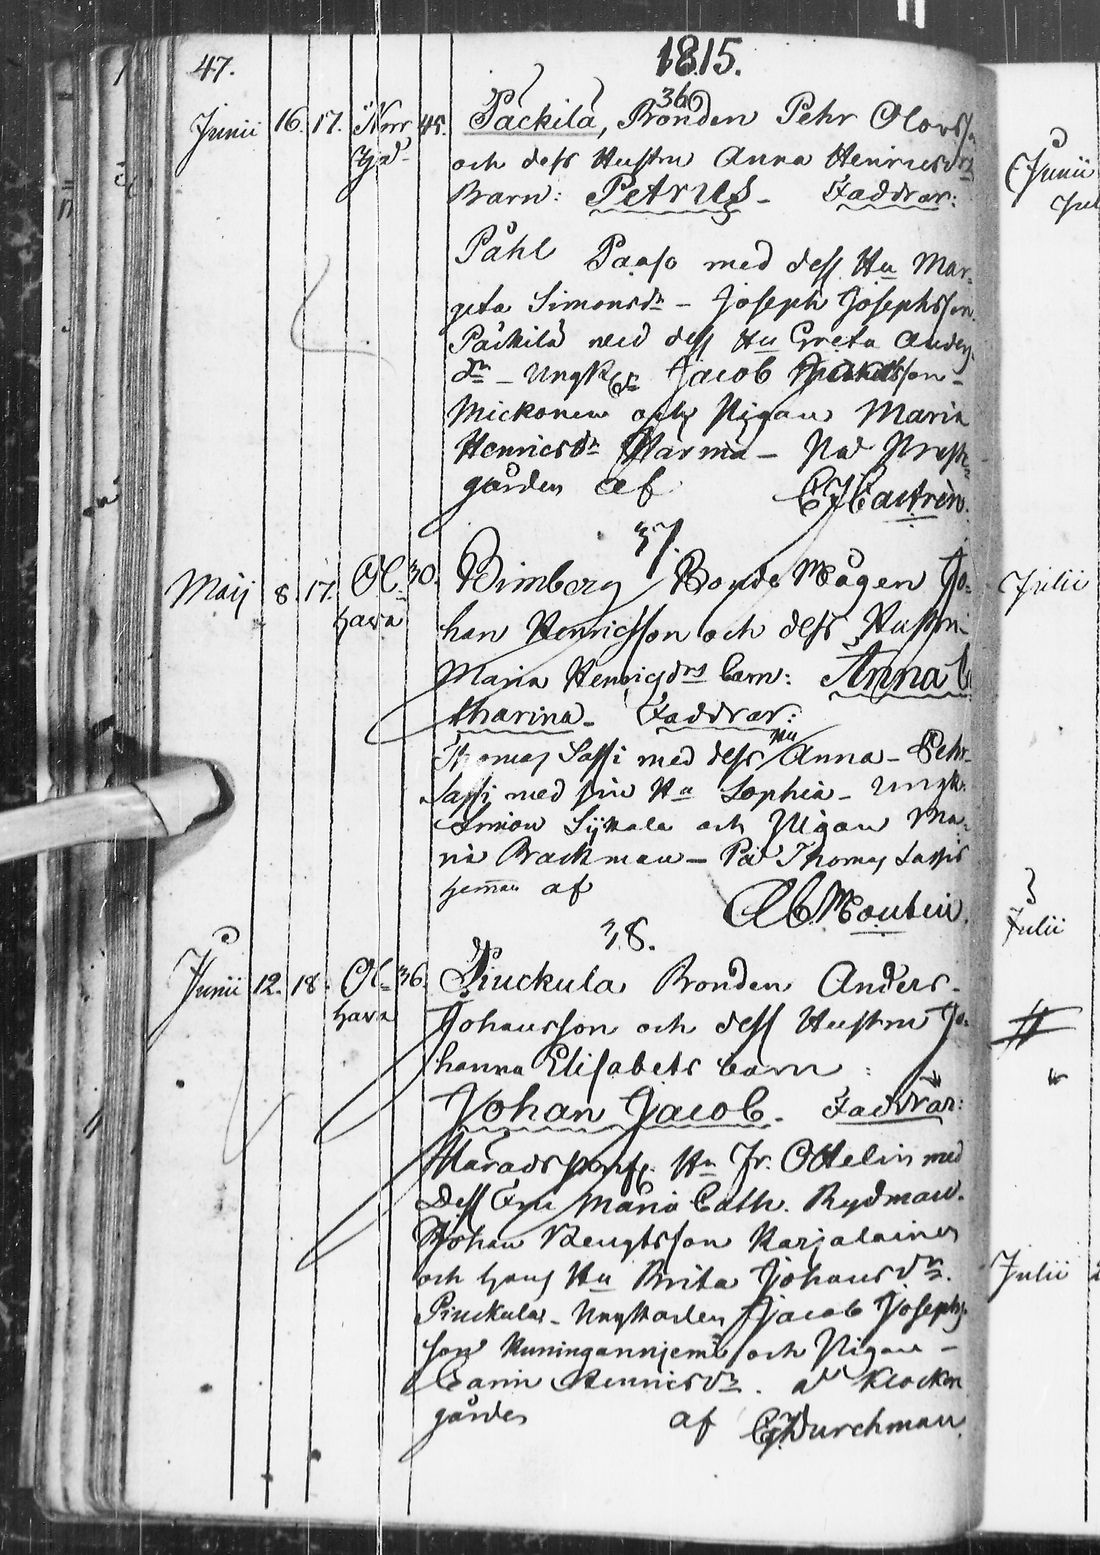 47.
1815.
36
Junii 16. 17. Norr 45. Päckilä, Bonden Pehr Olovss
och dess Hustru Anna Henricsdr
Barn: Petrus - Faddrar:
Påhl Paaso med dess Hu Mar-
geta Simonsdr - Joseph Josephsson
Päckilä med dess Hu Greta Anders
dr - Ungk Jacob
Mickonen och Pigan Maria
Henricsdr Harma - Prest-
gården af CJ Castrén.
37.
Maij 8. 17. Ol- 30. Bimberg Bonde Mågen Jo-
hava han Henricsson och dess Hustru
Maria Henrigdrs barn: Anna C
tharina - Faddrar:
Thomas Sassi med dess Hu Anna - Pehr
Sassi med sin Hu Sophia - Ungk.
Simon och Pigan Ma-
ria Brackman - På Thomas Sassis
heman af
Montin.
38.
Junii 12. 18. Ol- 36. Piuckula Bonden Anders
hava Johansson och dess Hustru Jo-
hanna Elisabets barn :
Johan Jacob. Faddrar:
Häradsprof. Hr Jr. Ottelin med
Dess Fru Maria Cath. Rydman.
Johan Bengtsson Karjalainen
och hans Hu Brita Johansdr.
Piuckula - Ungkarlen Jacob Josephs
son Kuninganniemi och Pigan -
Carin Henricsdr. Klockare
gården af Durchman
Junii
Jul
Julii
Julii
Julii